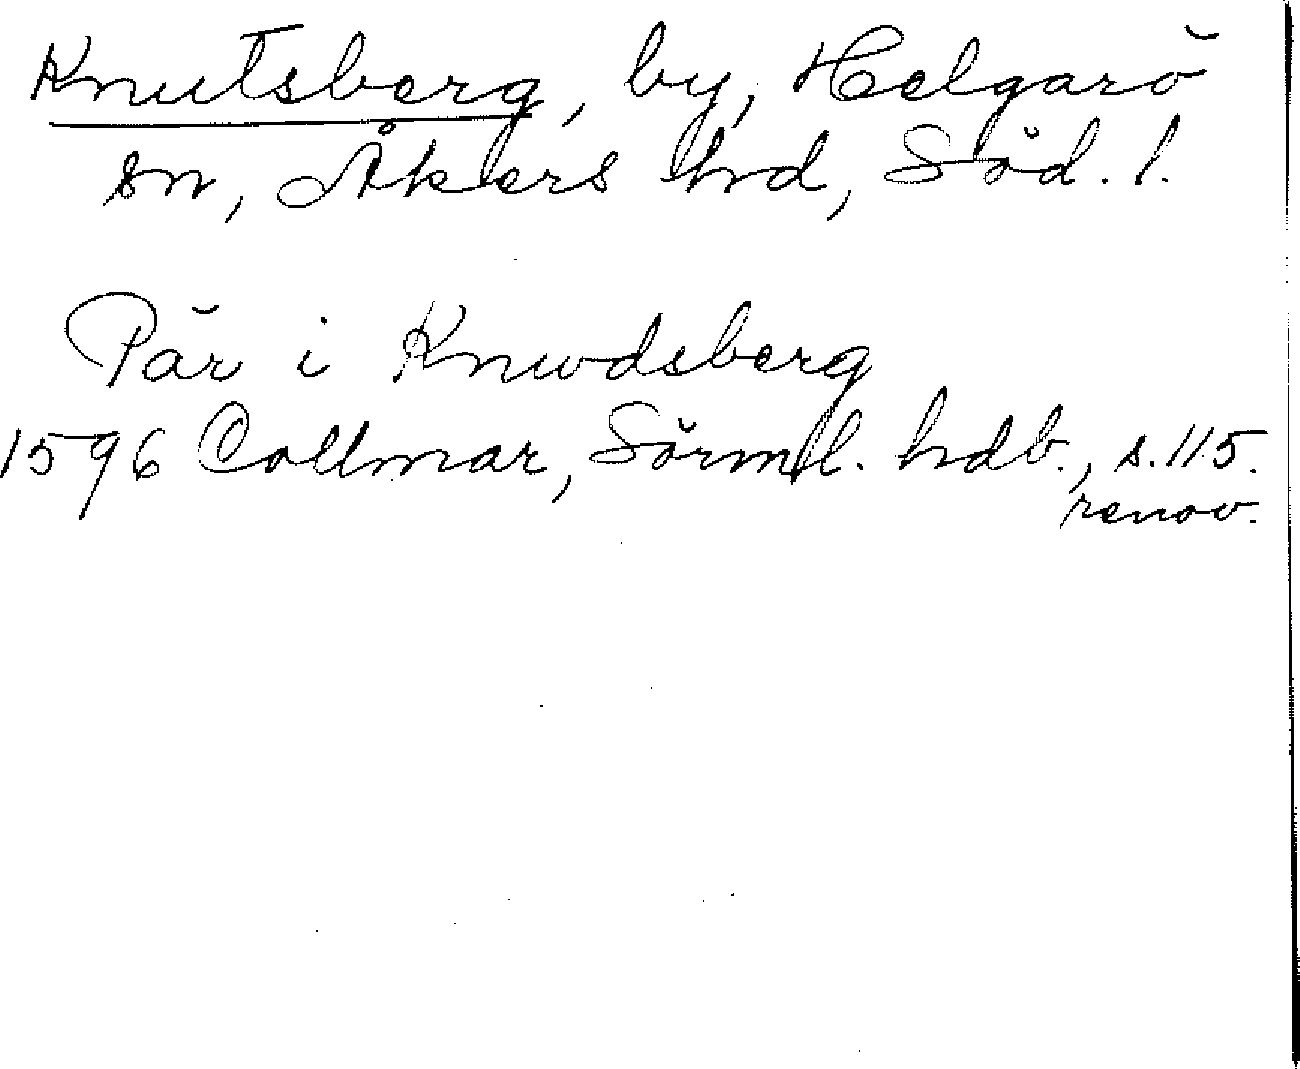 Knutsberg, by, Helgarö
sn, Åkers hrd, Söd. l.
Pär i Knwdsberg
1596 Collmar, Sörml. hdb., s. 115.
renov.